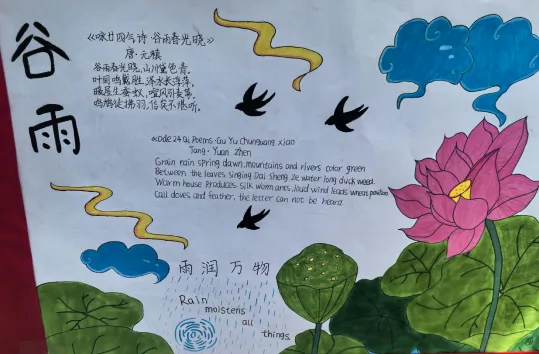 谷雨
《咏廿四气诗·谷雨春光晓》
唐·元稹
谷雨春光晓,山川黛色青。
叶间鸣戴胜,泽水长浮萍。
暖屋生蚕蚁,喧风引麦葶。
鸣鸠徒拂羽,信矣不堪听。
《Ode 24 Qi Poems·Gu Yu Chunguang xiao
Tang·Yuan Zhen
Grain rain spring dawn, mountains and rivers color green
Between the leaves singing Dai Sheng ze water long duck weed.
Warm house Produces silk worm ants, loud wind leads wheat pavilion
Call doves and feather, the letter can not be heard
雨润万物
Rain
moistens
all
things.